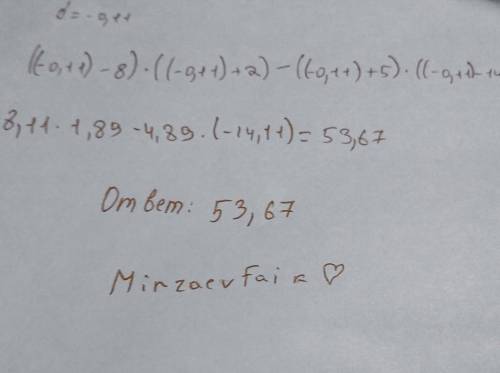 d = -0,11
((-0,11) - 8) · ((-0,11) + 2) - ((-0,11) + 5) · ((-0,11) - 14
8,11 · 1,89 - 4,89 · (-14,11) = 53,67
Ответ: 53,67
Mirzaev faik ♡